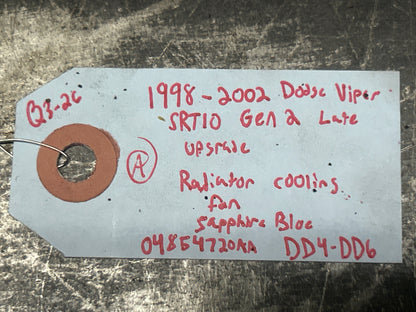 Q3-2C
1998-2002 Dodge Viper
SRT10 Gen 2 Late
upgrade
A
Radiator cooling
fan
Sapphire Blue
04854720AA DD4-DD6